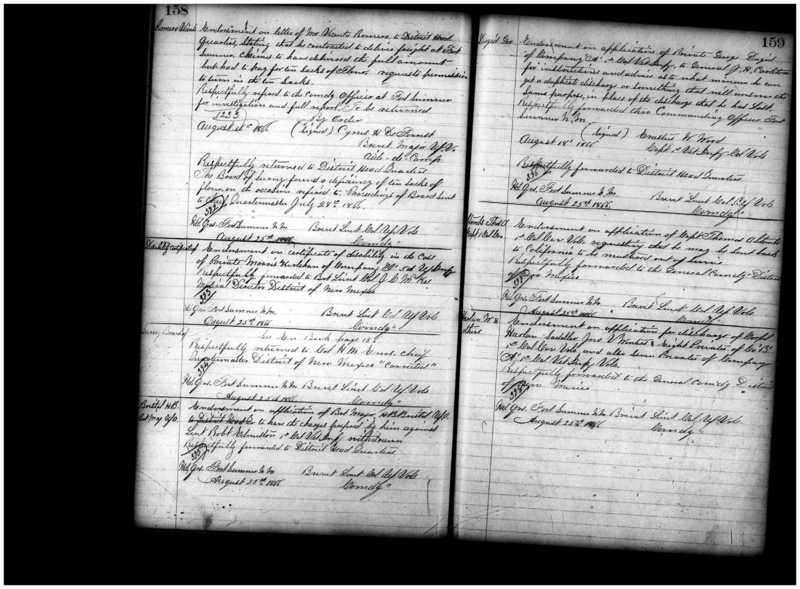 158
Endorsement on letter of Mr Vicente Romero to District Head
Quarters, stating that he contracted to deliver freight at Fort
Sumner claims to have delivered the full amount
but had to pay for ten sacks of Flour requests permission
to turn in the ten sacks.
Respectfully referred to the Comdg Officer at Fort Sumner
for investigation and full report. To be returned
1233
By Order
August 1866 (Signed) Cyrus H. De Forrest
Brevet Major U.S. Vo
Aide-de-Camp
Respectfully returned to District Head Quarters
The Board of Survey found a deficiency of ten sacks of
flour, on the occasion referred to. Proceedings of Board sent
to Chief Quartermaster July 28th 1866.
Hd Qrs. Fort Sumner N.M. Brevet Lieut Col U.S. Vols
August 25th 1866 Comdg"
Endorsement on certificate of disability in the Case
of Private Morris of Company 5th U.S. Infty
Respectfully forwarded to Bvt Lieut Col J. C. McKee
Medical Director District of New Mexico
393
Hd Qrs Fort Sumner N.M. Brevet Lieut Col U.S. Vols
August 25th 1866 Comdg"
See En Book page
Respectfully returned to Col H. M. Enos Chief
Quartermaster District of New Mexico "Corrected"
394
Hd Qrs. Fort Sumner N.M. Brevet Lieut Col U.S. Vols
August 25th 1866 Comdg"
Endorsement on application of Bvt Major H.B. U.S.
to have the charges prefered by him against
Lieut Robt 1st Cal Vet Infy withdrawn
Respectfully forwarded to District Head Quarters
395
Hd Qrs. Fort Sumner N.M. Brevet Lieut Col U.S. Vols
August 25th 1866 Comdg"
159
Endorsement on application of Private George
of Company "A" 1st Cal Vet Infy, to General J. H. Carleton
for instructions and advice as to what manner he can
get a duplicate discharge or something that will answer the
same purpose, in place of the discharge that he has Lost.
Respectfully forwarded thro Commanding Officer Fort
Sumner N.M.
(Signed) W. Wood
August 18th 1866 Capt 1st Vet Infy Cal Vols
Respectfully forwarded to District Head Quarters
396
Hd Qrs. Fort Sumner N.M. Brevet Lieut Col U.S. Vols
August 25th 1866 Comdg"
Endorsement on application of Capt Thomas
1st Cal Cav Vols requesting that he may be sent back
to California to be mustered out of service
Respectfully forwarded to the General Comdg District
of New Mexico
397
Hd Qrs. Fort Sumner N.M. Brevet Lieut Col U.S. Vols
August 25th 1866 Comdg"
Endorsement on application for discharge of
Harlan Saddler Jno. V. & Eight Privates of Co "B"
1st Cal Cav Vols, and also seven Privates of Company
"A" 1st Cal Vet Infy Vols
Respectfully forwarded to the General Comdg District
of New Mexico
398
Hd Qrs. Fort Sumner N.M. Brevet Lieut Col U.S. Vols
August 25th 1866 Comdg"